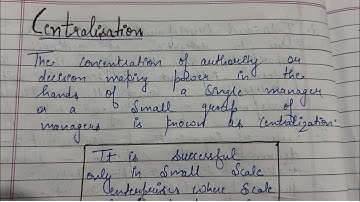 Centralisation
The concentration of authority or
decision making power in the
hands of a single manager
or a small group of
managers is known as centralization.
It is successful
only in small scale
enterprises where scale